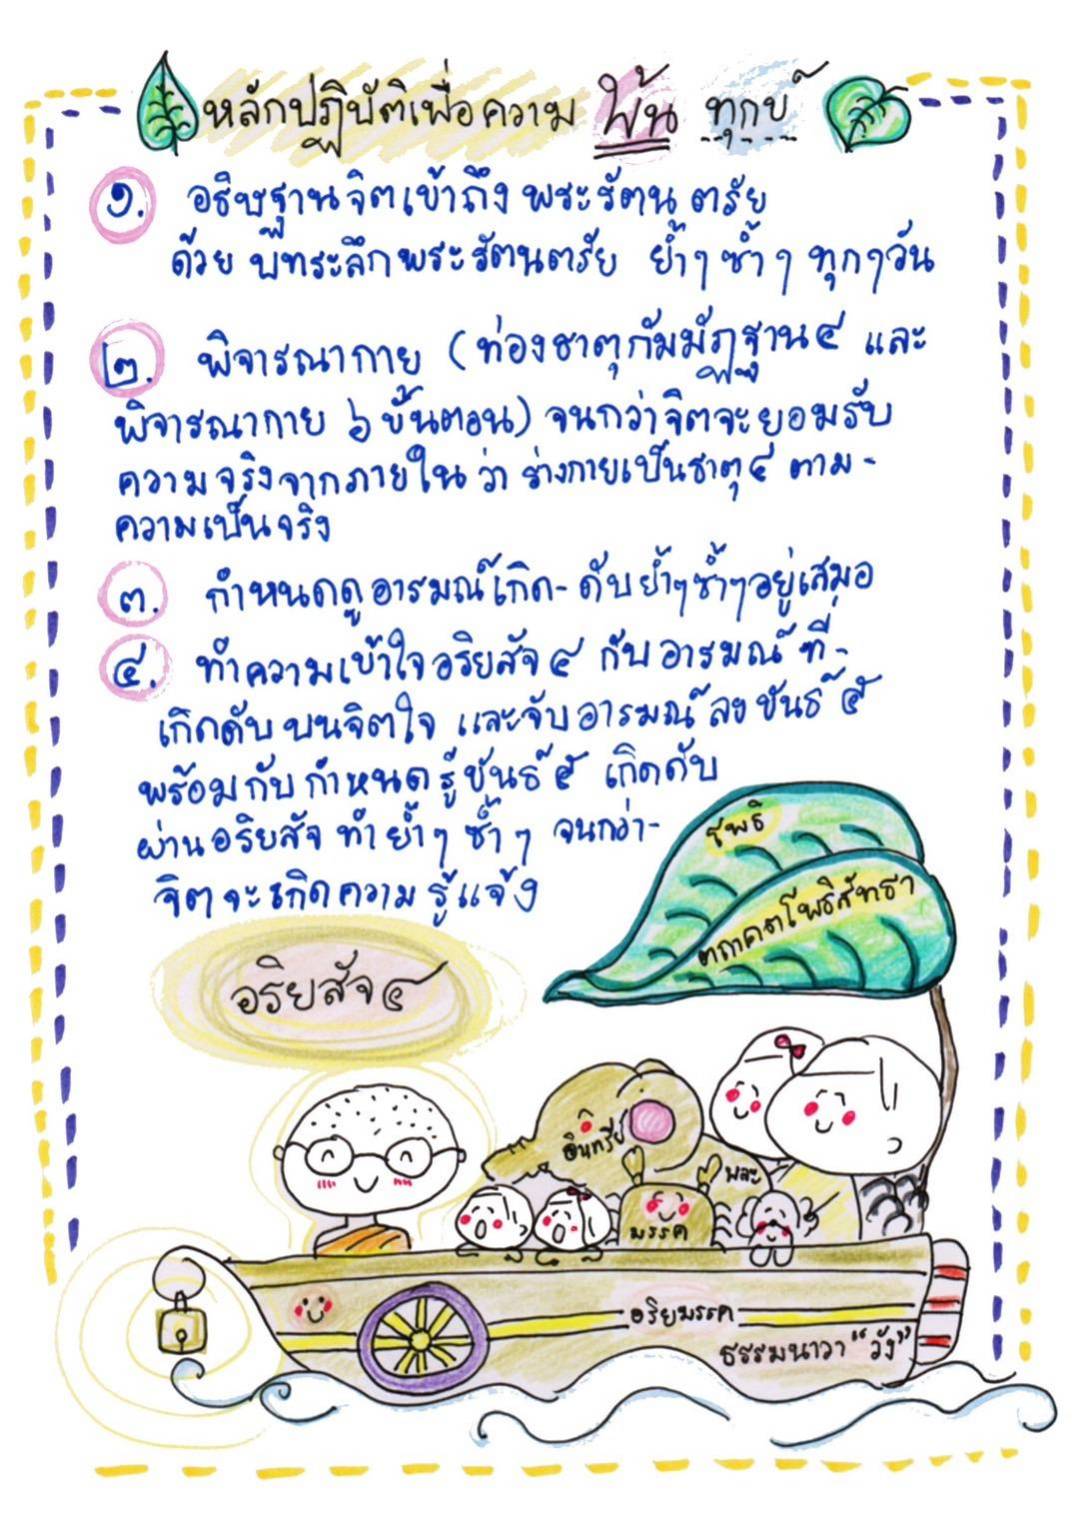 หลักปฏิบัติเพื่อความ พ้น ทุกข์
๑. อธิษฐานจิตเข้าถึง พระรัตนตรัย
ด้วย บทระลึกพระรัตนตรัย ย้ำๆ ซ้ำๆ ทุกๆวัน
๒. พิจารณากาย (ท่องธาตุกัมมัฏฐาน๔ และ
พิจารณากาย ๖ ขั้นตอน) จนกว่าจิตจะยอมรับ
ความจริงจากภายใน ว่า ร่างกายเป็นธาตุ๔ ตาม-
ความเป็นจริง
๓. กำหนดดูอารมณ์เกิด-ดับย้ำๆซ้ำๆอยู่เสมอ
๔. ทำความเข้าใจอริยสัจ๔ กับอารมณ์ที่-
เกิดดับบนจิตใจ และจับอารมณ์ลงขันธ์๕
พร้อมกับกำหนดรู้ขันธ์๕ เกิดดับ
ผ่านอริยสัจ ทำย้ำๆ ซ้ำๆ จนกว่า-
จิตจะเกิดความรู้แจ้ง
โพธิ
ตถาคตโพธิสัทธา
อริยสัจ๔
อินทรีย์
พละ
มรรค
อริยมรรค
ธรรมนาวา "วัง"